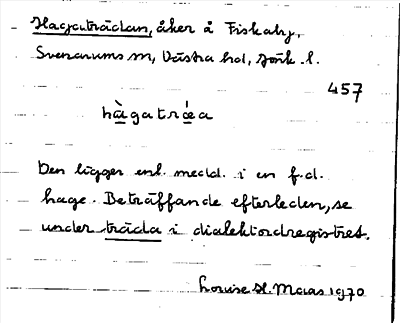 Hagaträdan, åker å Fiskaby,
Svenarums sn, Västra hd, Jönk. l.
457
hàgatrǽa
Den ligger enl. medd. i en f.d.
hage. Beträffande efterleden, se
under träda i dialektordregistret.
Louise St. Maas 1970